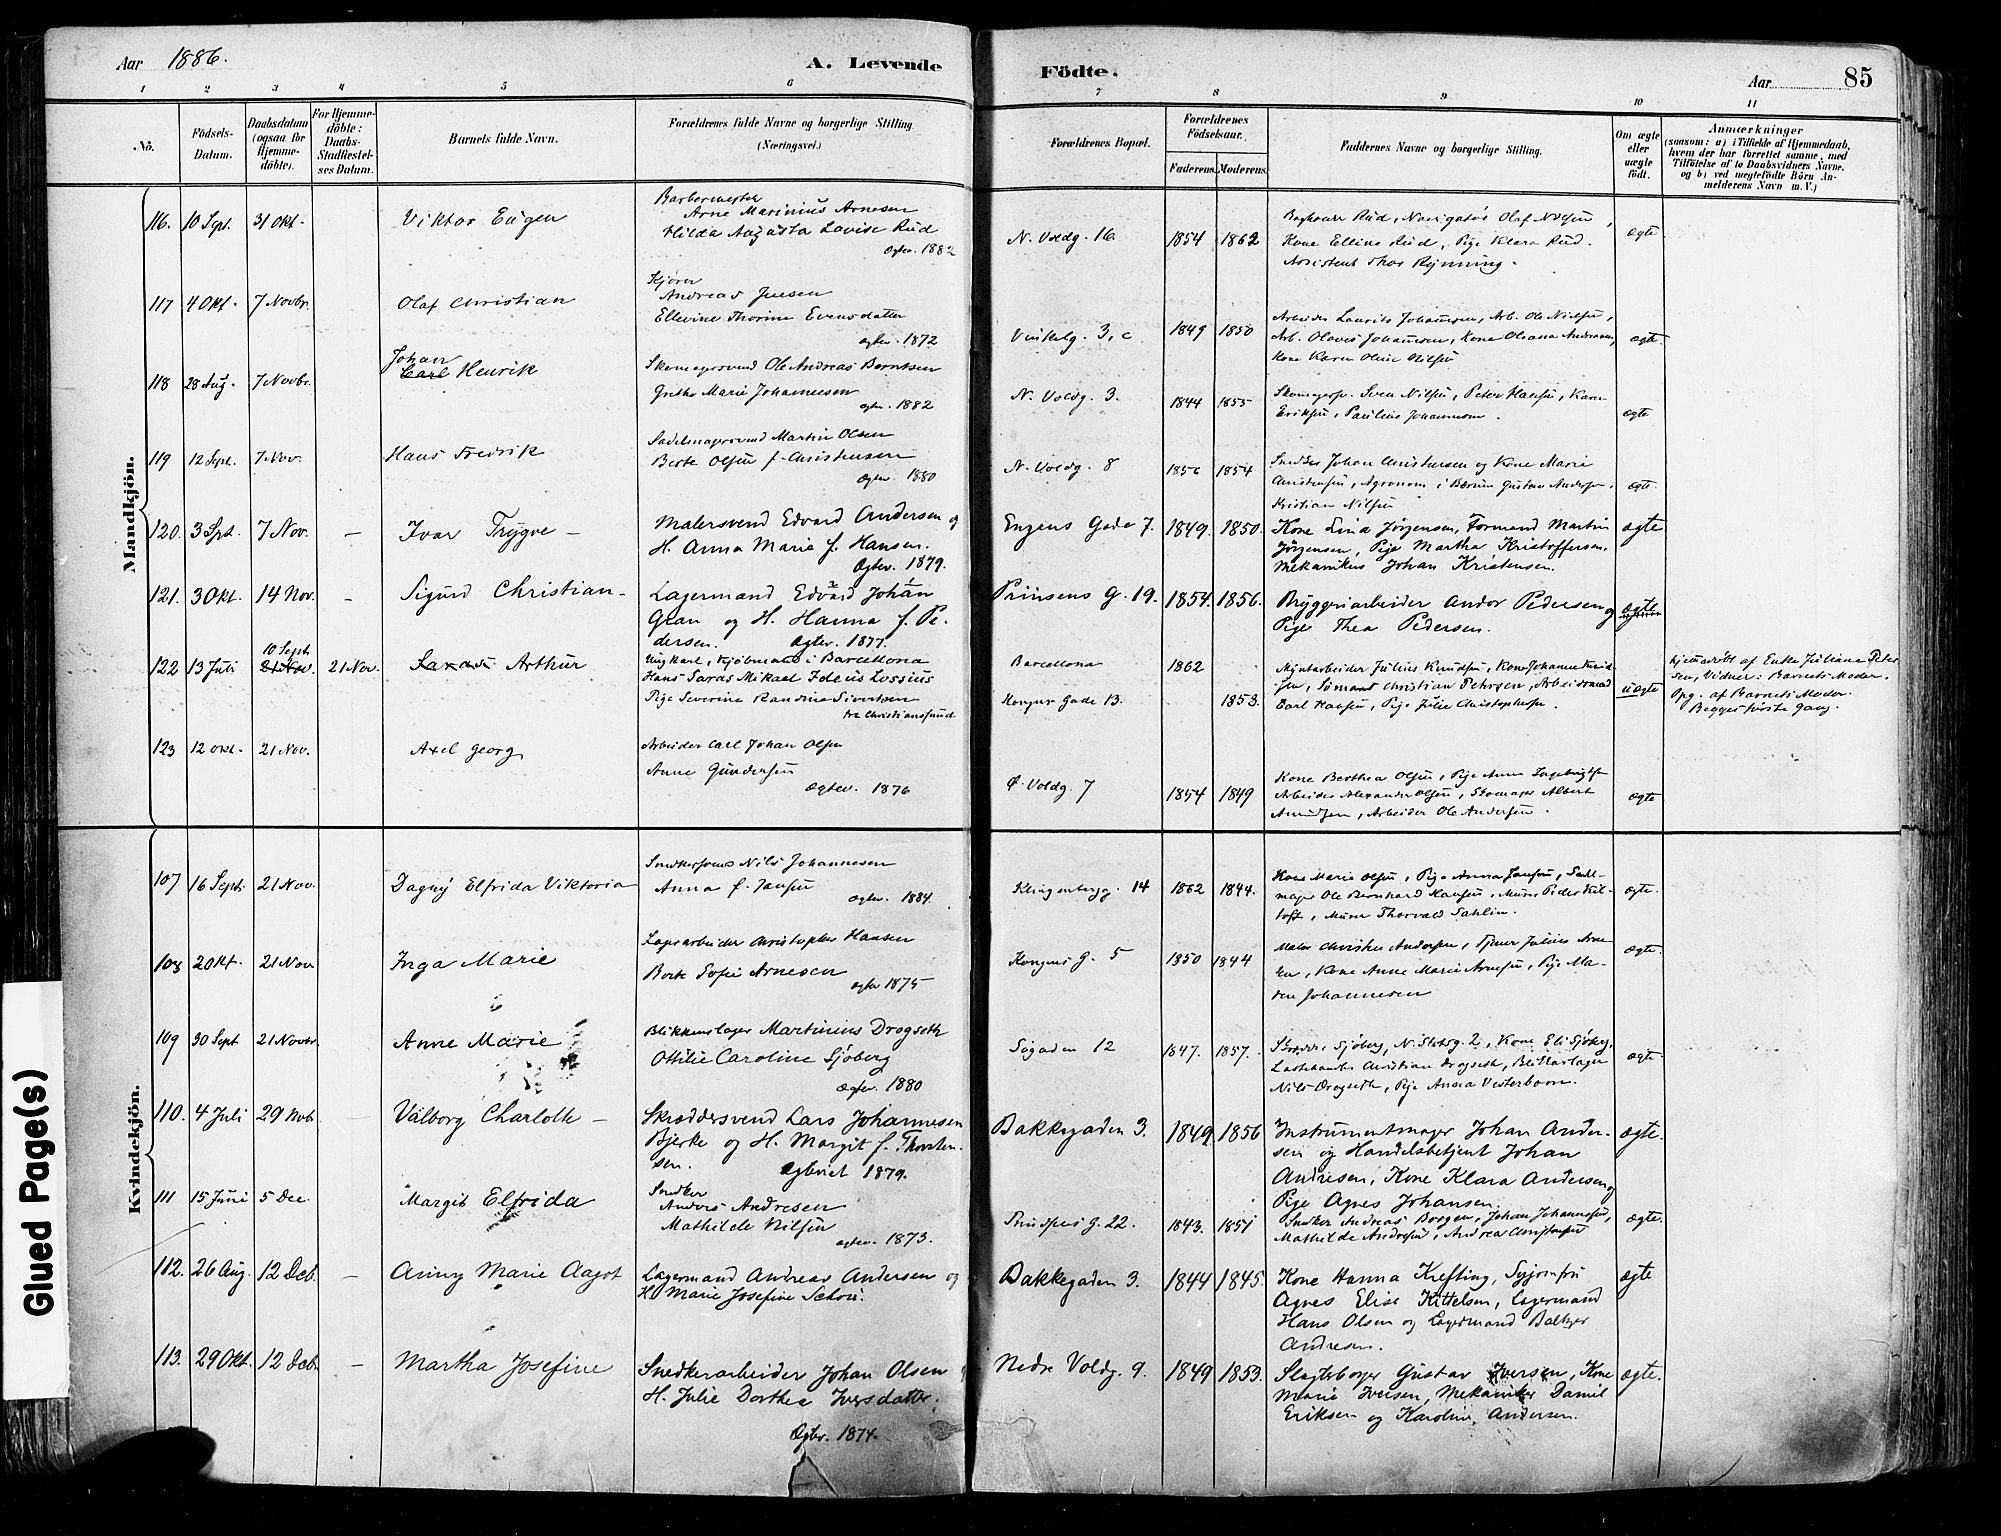 Aar 1886.
A. Levende
Födte.
Aar 85
1 2 3 4 5 6 7 8 9 10 11
No.
Födsels-Datum.
Daabsdatum (ogsaa for Hjemme-döbte).
For Hjemme-döbte: Daabs-Stadfæstel-ses Datum.
Barnets fulde Navn.
Forældrenes fulde Navne og borgerlige Stilling (Næringsvei.)
Forældrenes Bopæl.
Forældrenes Födselsaar.
Faderens. Moderens.
Faddernes Navne og borgerlige Stilling.
Om ægte eller uægte födt.
Anmærkninger
(saasom: a) i Tilfælde af Hjemmedaab,
hvem der har forrettet samme, med
Tilföielse af to Daabsvidners Navne,
og b) ved uægtefödte Börn An-
melderens Navn m. V.)
Mandkjön.
116. 10 Sept. 31 Okt. Viktor Eugen
Barbermester
Arne Marinius Arnesen
Hilda Augusta Lovise Rud
Ægtev. 1882
N. Voldg. 16 1854 1862
Kone Elline Rud, Pige Klara Rud.
Assistent Thor Rynning.
ægte
117 4 Okt. 7 Novbr. Olaf Christian
Kjører
Andreas Jensen
Ellevine Thorine Evensdatter
Ægtev. 1872
Vinkelg. 3, c 1849 1850
Arbeider Laurits Johannesen, Arb. Ole Nielsen,
Arb. Olaves Johannesen, Kone Oleana Andreasen,
Kone Karen Oline Nilsen
ægte.
118 28 Aug. 7 Novbr. Johan Carl Henrik
Skomagersvend Ole Andreas Berntsen
Grethe Marie Johannesen
ægtev. 1882
N. Voldg. 3. 1844 1855
Skomagersv. Sven Nilsen, Peter Hansen, Karen
Eriksen, Pauline Johannesen.
ægte
119 12 Sept. 7 Nov. Hans Fredrik
Sadelmagersvend Martin Olsen
Berte Olsen f. Christensen
Ægtev. 1880
N. Voldg. 8 1856 1854
Snedker Johan Christensen og Kone Marie
Christensen, Agronom i Bærum Gustav Andersen,
Kristian Nilsen
ægte.
120. 3 Sept. 7 Nov. – Ivar Trygve –
Malersvend Edvard Andersen og
H. Anna Marie f. Hansen.
Ægtev. 1879.
Engens Gade 7. 1849. 1850.
Kone Lina Jörgensen, Formand Martin
Jörgensen, Pige Martha Kristoffersen,
Mekanikus Johan Kristensen.
ægte
121. 3 Okt. 14 Nov. – Sigurd Christian –
Lagermand Edvard Johan
Gran og H. Hanna f. Pe-
dersen. Ægtev. 1877.
Prinsens G. 19. 1854. 1856.
Bryggeriarbeider Andor Pedersen og
Pige Thea Pedersen.
ægte
122 13 Juli 10 Sept 21 Nov. 21 Nov. Arthur
Ungkarl, Kjøbmand i Barcellona
Hans Saras Mikael Ideus Lossius
Pige Severine Randine Sivertsen
fra Christianssund
Barcellona 1862
Kongens Gade 13. 1853.
Myntarbeider Julius Knudsen, Kone Johanne Knud-
sen, Sømand Christian Petersen, Arbeidsmand
Carl Hansen, Pige Julie Christophersen.
uægte
hjemmedøbt af Enke Juliane Peter-
sen, Vidner: Barnets Moder.
Opg. af Barnets Moder.
Begges første Gang.
123 12 Okt. 21 Nov. Axel Georg
Arbeider Carl Johan Olsen
Anne Gundersen
Ægtev. 1876
Ø. Voldg. 7 1854 1849
Kone Berthea Olsen, Pige Anna Ingebrigtsen
Arbeider Alexander Olsen, Skomager Albert
Amundsen, Arbeider Ole Andersen.
ægte
Kvindekjön.
107 16 Sept. 21 Nov. Dagny Elfrida Viktoria
Snedkersvend Nils Johannesen
Anna f. Jansen
ægtev. 1884.
Klingenbergg. 14 1862 1844.
Kone Marie Olsen, Pige Anna Jansen, Sadel-
mager Ole Bernhard Hansen, Murer Peder Kil-
toft, Murer Thorvald Sahlin.
ægte.
108 2 Okt. 21 Nov Inga Marie
Lagerarbeider Christopher Hansen
Berte Sofie Arnesen
ægtev 1875
Kongens G. 5 1850 1844
Maler Christian Andersen, Tjener Julius Arne-
sen, Kone Anne Marie Arnesen, Pige Ma-
Johannesen
ægte.
109 30 Sept 21 Novbr. Anne Marie
Blikkenslager Martinius Drogseth
Ottilie Caroline Sjöberg
Ægtev. 1880
Søgaden 12 1847. 1857.
Skræder Sjöberg, N. Slotsg. 2, Kone Eli Sjöberg,
Christian Drogseth, Blikkenslager
Nils Drogseth, Pige Anna Vesterboen.
ægte
110. 4 Juli 29 Novb. Valborg Charlotte –
Skræddersvend Lars Johannesen
Bjerke og H. Margit f. Thorsten-
sen. Ægteviet 1879.
Bakkegaden 3. 1849 1856
Instrumentmager Johan Ander-
sen og Handelsbetjent Johan
Andresen, Kone Klara Andersen og
Pige Agnes Johansen.
ægte.
111 15 Juni 5 Dec. Margit Elfrida
Snedker
Anders Andresen
Mathilde Nilsen
ægtev. 1873.
G. 22. 1843. 1851
Snedker Andreas Borgen, Johan Johannesen,
Mathilde Andresen, Andrea Christensen
ægte.
112. 26 Aug. 12 Deb. – Anny Marie Aagot
Lagermand Andreas Andersen og
H. Marie Josefine Schou.
Bakkegaden 3. 1844 1845.
Kone Hanna Krefting, Syjomfru
Agnes Elise Kittelsen, Lagermand
Hans Olsen og Lagermand Baltzer
Andresen.
ægte
113. 29 Okt. 12 Deb. – Martha Josefine
Snedkerarbeider Johan Olsen
H. Julie Dorthea Iversdatter.
Ægtev. 1874.
Nedre Voldg. 9. 1849 1853.
Slagteborger Gustav Iversen, Kone
Marie Iversen, Mekaniker Daniel
Eriksen og Karoline Andersen.
ægte.
Glued Page(s)